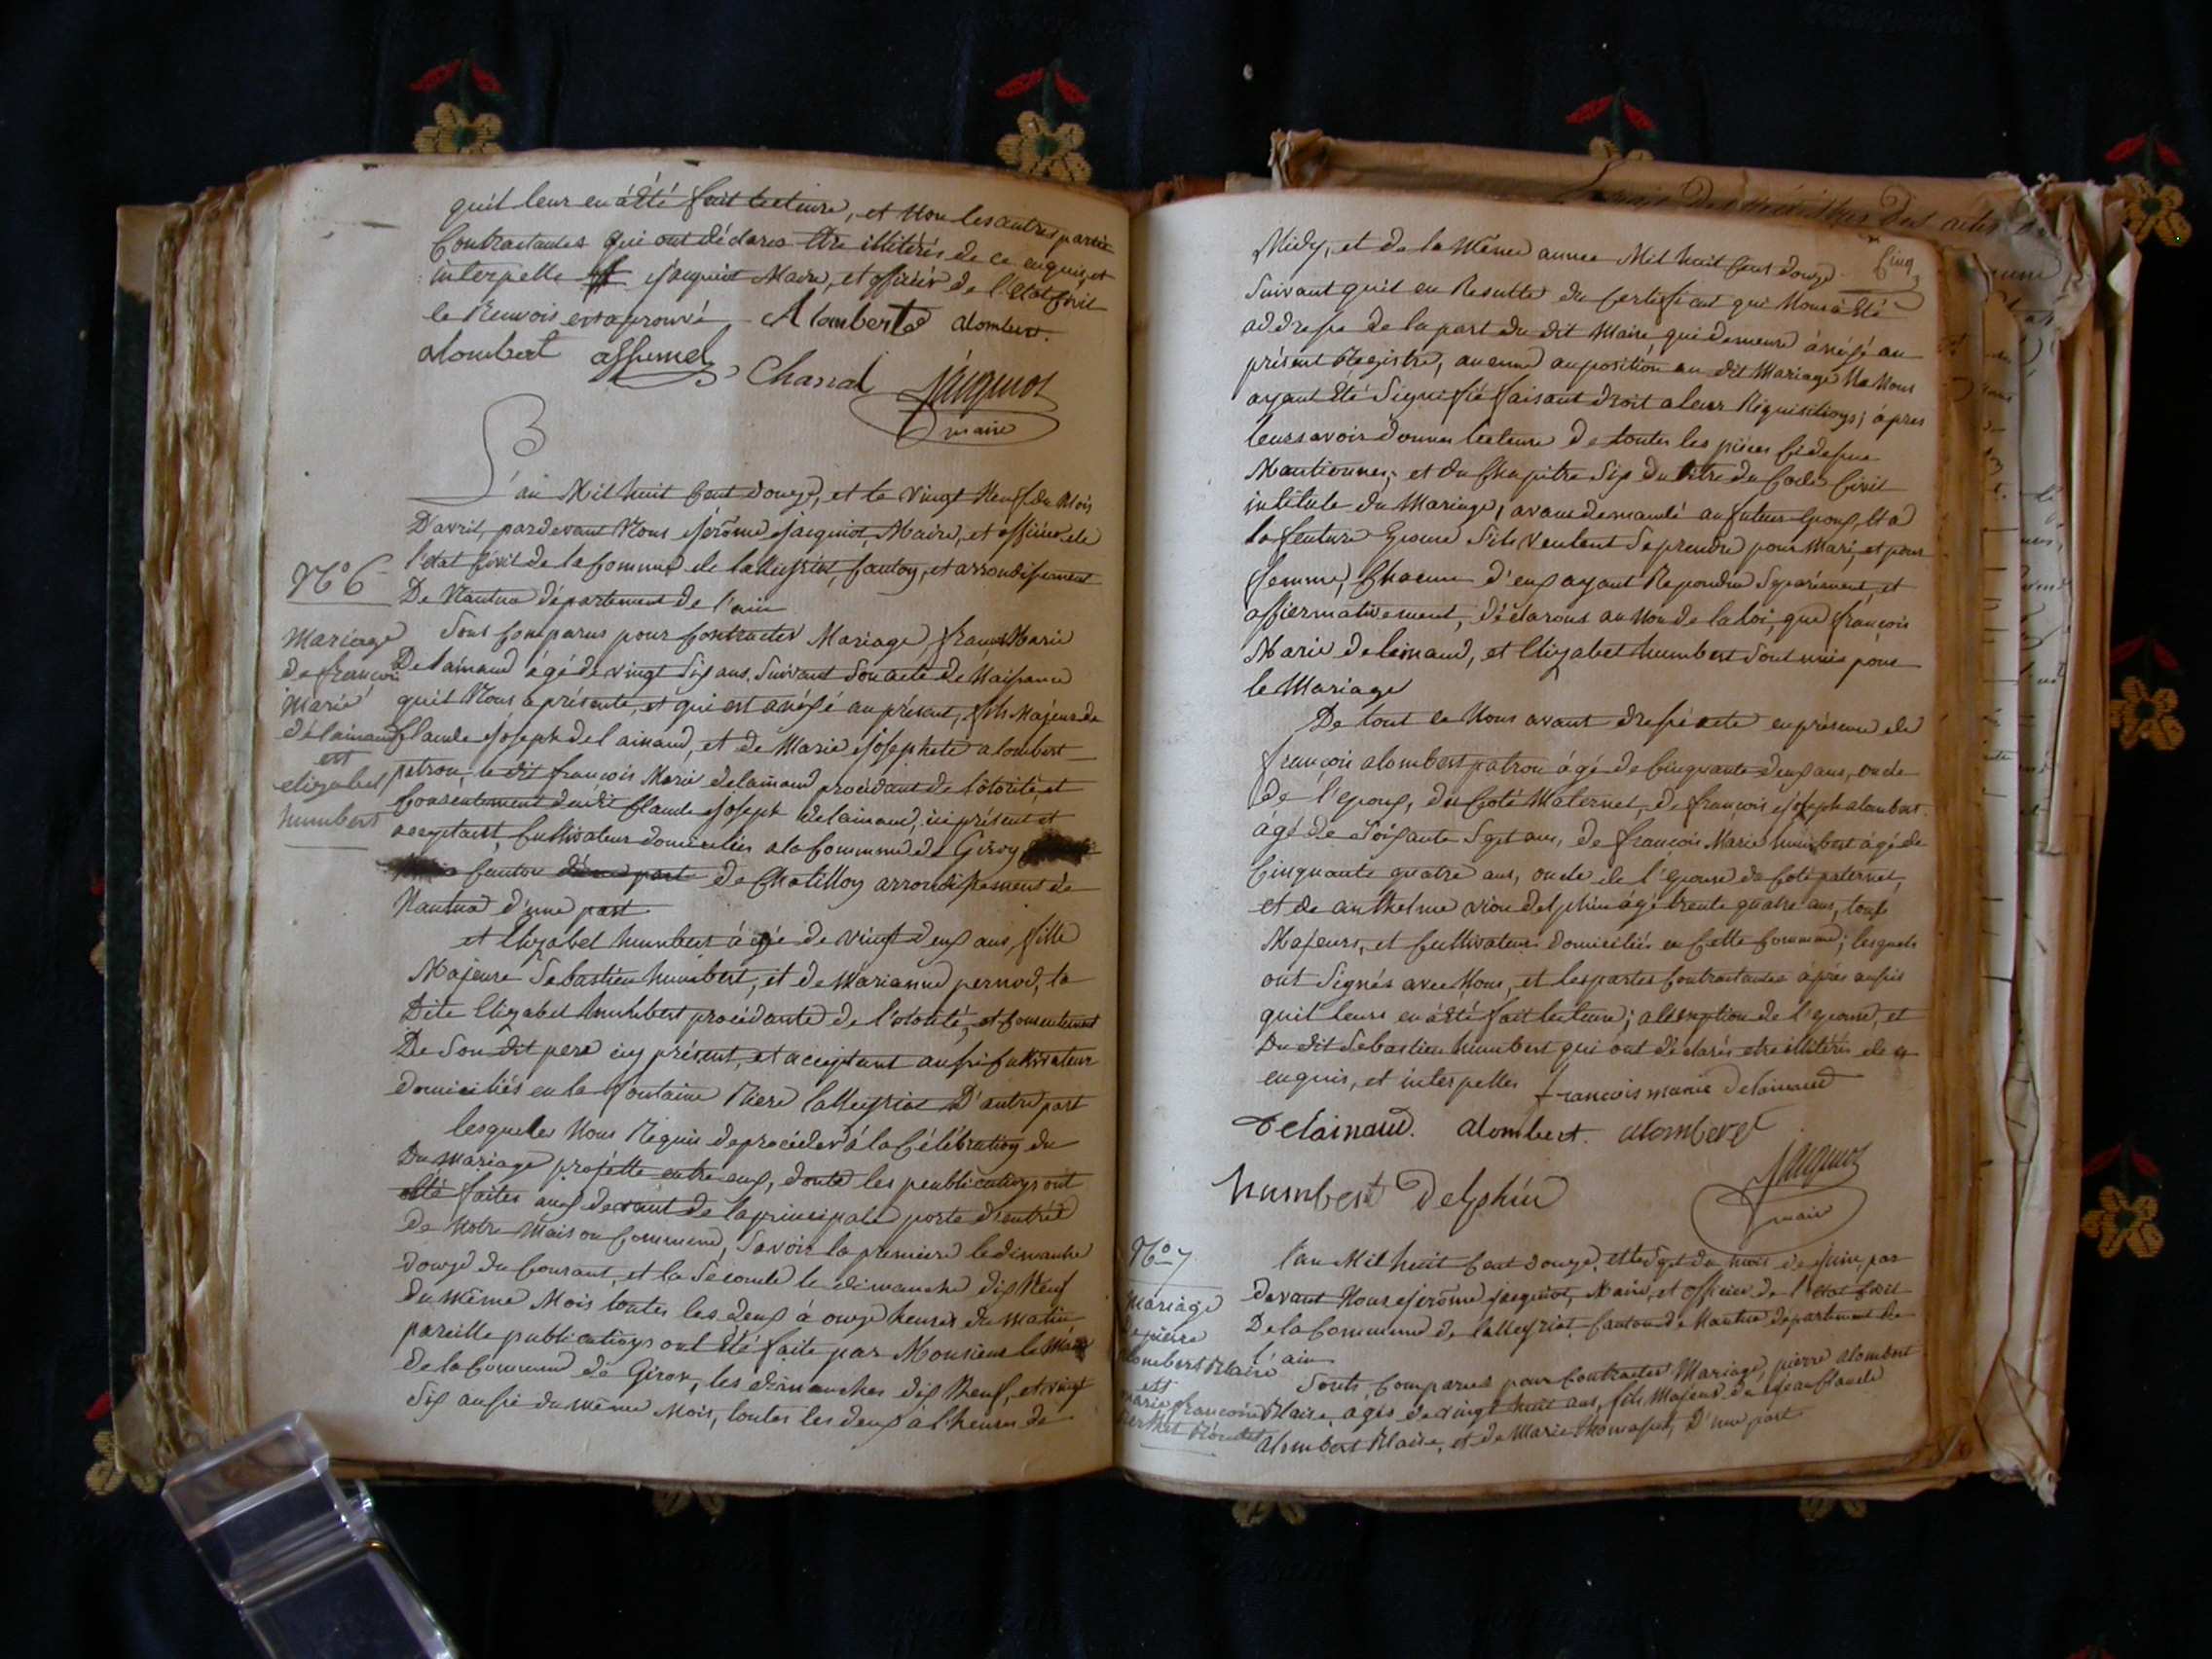 quil leur en a été fait lecture, et Non les autres partie
Contractantes qui ont déclares être illitérés de ce enquis, et
interpelle jacquiot Maire, et officier de l'état Civil
le Renvois est aprouvé Alombert alombert.
alombert Chanal jacquiot
maire
L'an Mil huit Cent douze, et le vingt Neuf du Mois
D'avril, pardevant Nous jérôme jacquiot, Maire, et officier de
l'état Civil de la Commune de lalleyriat, Canton, et arrondissement
De Nantua département de l'ain
N° 6
Mariage
de françois
Marie
delainaud
est
elizabet
humbert
Sont Comparus pour Contracter Mariage, françois Marie
Delainaud âgé de vingt Six ans, Suivant Son acte de Naissance
quil Nous a présenté, et qui est anéxé au présent, fils Majeur de
Claude joseph delainaud, et de Marie josephete alombert
patron, le dit françois Marie delainaud procédant de lotorité, et
Consentement dudit Claude joseph delainaud, ici présent et
acceptant, Cultivateur domiciliés a la Commune de Giroy
Canton d'une part de Chatilloy arrondissement de
Nantua d'une part
et Elizabet humbert âgée de vingt deux ans, fille
Majeure Sebastien humbert, et de Marianne pernod, la
Dite Elizabet humbert procédante de l'otorité, et Consentement
De Son dit pere icy présent, et acceptant aussi Cultivateur
domiciliés en la Fontaine Riere lalleyriat D'autre part
lesqueles Nous Réquis de procéder à la Célébration du
Du mariage projetté entre eux, donte les peublicationys ont
été faites aux devant de la principale porte d'entréé
de Notre Maison Commune, Savoir la premiere le dimanche
douze du Courant, et la Seconde le dimanche dix Neuf
du même Mois toutes les deux à onze heures du matin,
pareille publicationys ont été faite par Monsieur le Maire
de la Commune de Giron, les dimanches dix Neuf, et vingt
Six aussi du même Mois, toutes les deux à l'heures de
Cinq
Midy, et de la Même annee Mil huit Cent douze
Suivant quil en Resulte du Certificat qui Nous a été
addresse de la part du dit Maire qui demeure anéxé au
présent Registre, aucune auposition au dit Mariage Ne Nous
ayant été Signifié faisant droit a leur Réquisitionys; àpres
leurs avoir donner lecture de toutes les pièces Cidessus
Mantionnes, et du Chapitre Six du titre du Code Civil
intitule du Mariage, avons demandé au futeur Epoux, et a
la feuture Epouse S'ils veulent Se prendre pour Mari, et pour
femme, Chacun d'eux ayant Repondu Séparément, et
affiermativement, déclarons au Nom de la loi, que françois
Marie delainaud, et Elizabet humbert Sont unis pour
le Mariage
De tout ce Nous avons dressé acte en présence de
françois alombert patron âgé de Cinquante deux ans, oncle
de l'epoux, du Coté Maternel, de françois joseph alombert
âgé de Soixante Sept ans, de françois Marie humbert âgé de
Cinquante quatre ans, oncle de l'epouse du Coté paternel,
et de anthelme vion delphin âgé trente quatre ans, tous
Majeurs, et Cultivateurs domiciliés en Cette Commune; lesquels
ont Signés avec Nous, et les partes Contractantes àprès
quil leurs en a été fait lecture; a l'exception de l'epouse, et
Du dit Sebastien humbert qui ont déclarés etre illitérés de ce
enquis, et interpelles francois marie delainaud
Delainaud. alombert. alombert
jacquiot
humbert Delphin
maire
N° 7
Mariage
de pierre
alombert Blaise
est
marie francoise
l'an Mil huit Cent douze, et le Sept du mois de juin, par
devant Nous jerôme jacquiot, Maire, et officier de l'état Civil
De la Commune de lalleyriat Canton de Nantua département de
l'ain
Sonts Comparus pour Contracter Mariage, pierre alombert
Blaise, agés de vingt huit ans, fils Majeur de jean Claude
alombert Blaise, et de Marie D'une part